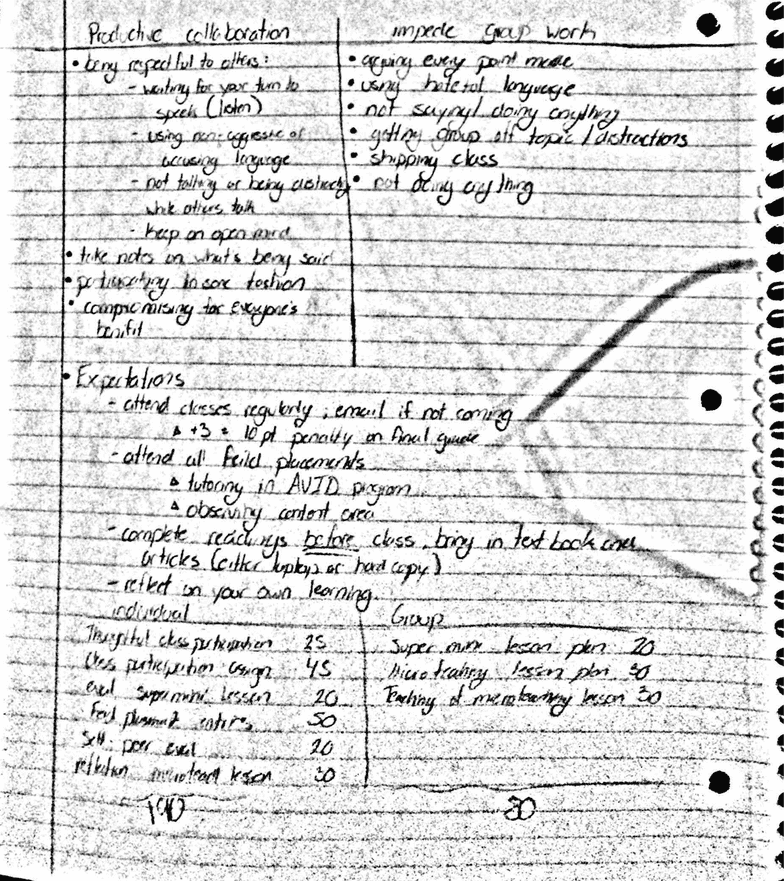 Productive collaboration
• being respectful to others:
- waiting for your turn to
speak (listen)
- using non-aggressive or
accusing language
- not talking or being distracting
while others talk
- keep an open mind
• take notes on what's being said
• participating in some fashion
• compromising for everyone's
benifit
impede group work
• arguing every point made
• using hateful language
• not saying/doing anything
• getting group off topic/distractions
• skipping class
• not doing anything
• Expectations
- attend classes regularly, email if not coming
+3 = 10 pt penalty on final grade
- attend all feild placements
tutoring in AVID program
observing content area
- complete readings before class, bring in text book and
articles (either laptop or hard copy)
- reflect on your own learning.
individual
Thoughtful class participation 25
Class participation assign 45
eval supermini lesson 20
50
self peer eval 20
microteach lesson 30
190
Group
Super mini lesson plan 20
Microteaching lesson plan 30
Teaching of microteaching lesson 30
80